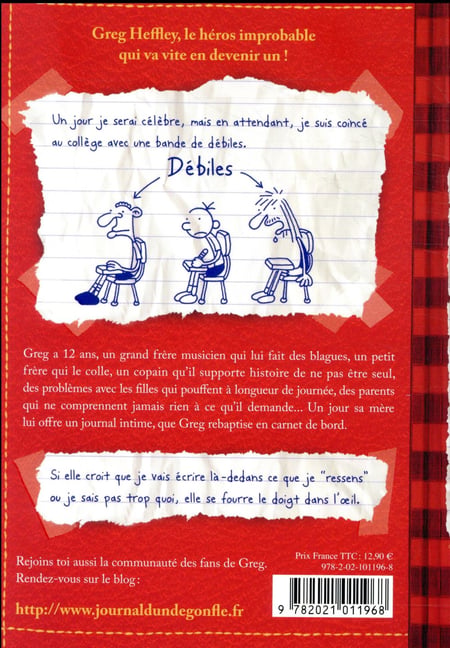 Greg Heffley, le héros improbable
qui va vite en devenir un !
Un jour je serai célèbre, mais en attendant, je suis coincé
au collège avec une bande de débiles.
Débiles
Greg a 12 ans, un grand frère musicien qui lui fait des blagues, un petit
frère qui le colle, un copain qu'il supporte histoire de ne pas être seul,
des problèmes avec les filles qui pouffent à longueur de journée, des parents
qui ne comprennent jamais rien à ce qu'il demande... Un jour sa mère
lui offre un journal intime, que Greg rebaptise en carnet de bord.
Si elle croit que je vais écrire là-dedans ce que je "ressens"
ou je sais pas trop quoi, elle se fourre le doigt dans l'œil.
Rejoins toi aussi la communauté des fans de Greg.
Rendez-vous sur le blog :
http://www.journaldundegonfle.fr
Prix France TTC : 12,90 €
978-2-02-101196-8
9 782021 011968